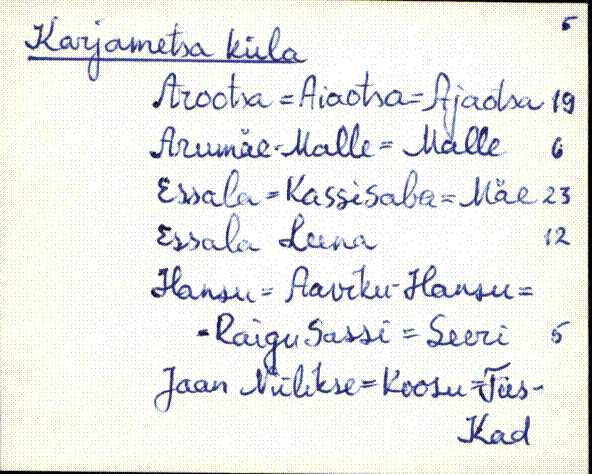 5
Karjametsa küla
Arootsa = Aiaotsa = Ajaotsa 19
Arumäe-Malle = Malle 6
Essala = Kassisaba = Mäe 23
Essala Leena 12
Hansu = Aaviku-Hansu =
-Raigu Sassi = Seeri 5
Jaan Niilikse = Koosu = Tiis-
Kad